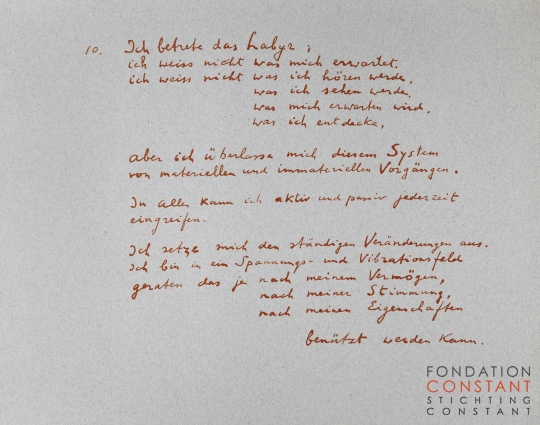 10. Ich betrete das Labyr;
ich weiss nicht was mich erwartet,
ich weiss nicht was ich hören werde,
was ich sehen werde,
was mich erwarten wird,
was ich entdecke,
aber ich überlasse mich diesem System
von materiellen und immateriellen Vorgängen.
In allem kann ich aktiv und passiv jederzeit
eingreifen.
Ich setze mich den ständigen Veränderungen aus.
Ich bin in ein Spannungs- und Vibrationsfeld
geraten das je nach meinem Vermögen,
nach meiner Stimmung,
nach meinen Eigenschaften
benützt werden kann.
FONDATION
CONSTANT
STICHTING
CONSTANT